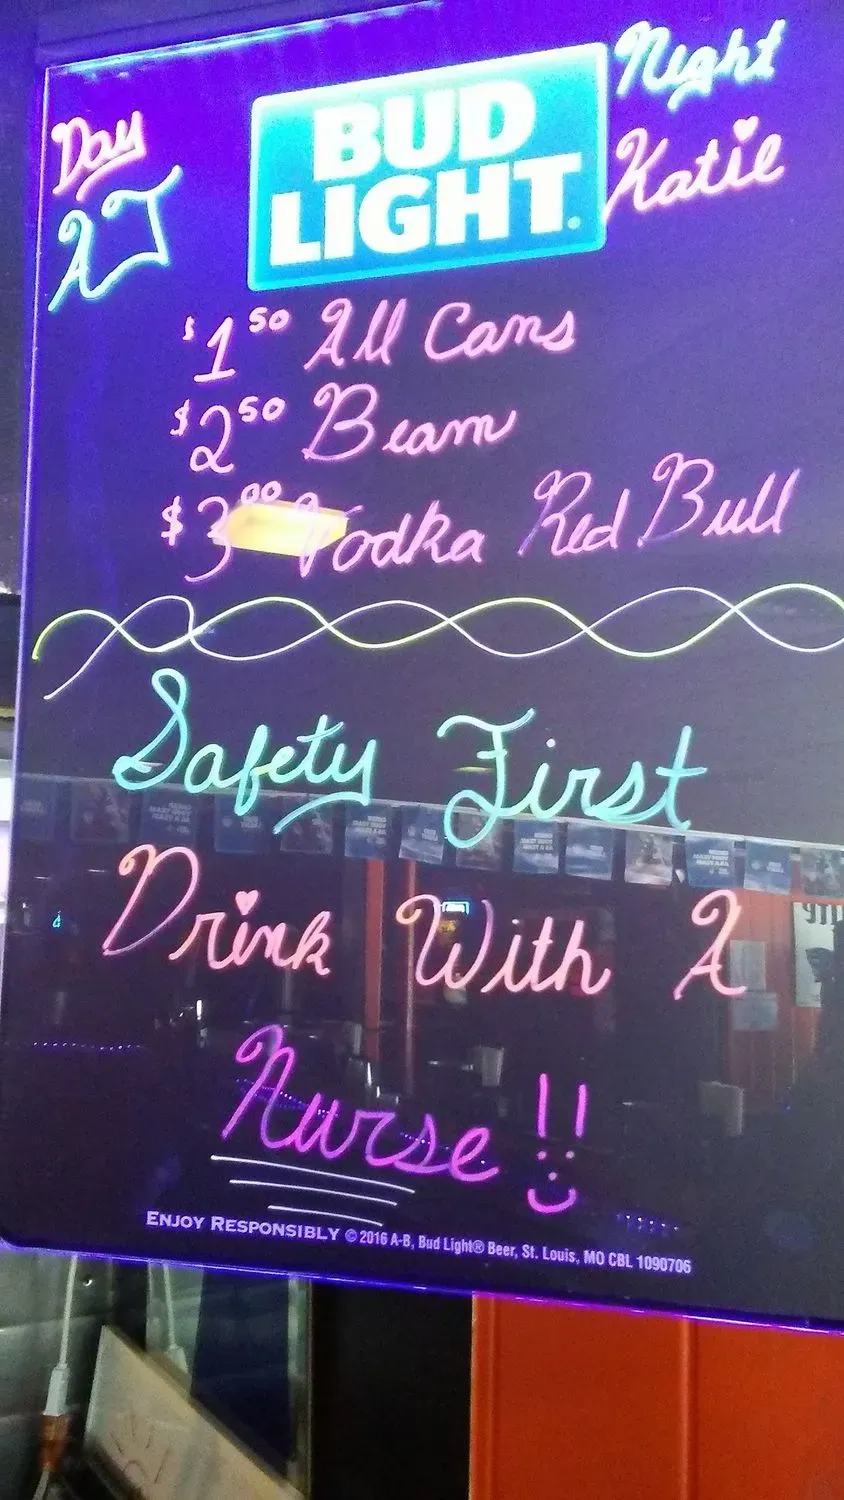 Day
AJ
BUD
LIGHT.
Night
Katie
$1.50 All Cans
$2.50 Beam
$3.00 Vodka Red Bull
Safety First
Drink With A
Nurse!!
ENJOY RESPONSIBLY © 2016 A-B, Bud Light® Beer, St. Louis, MO CBL 1090706